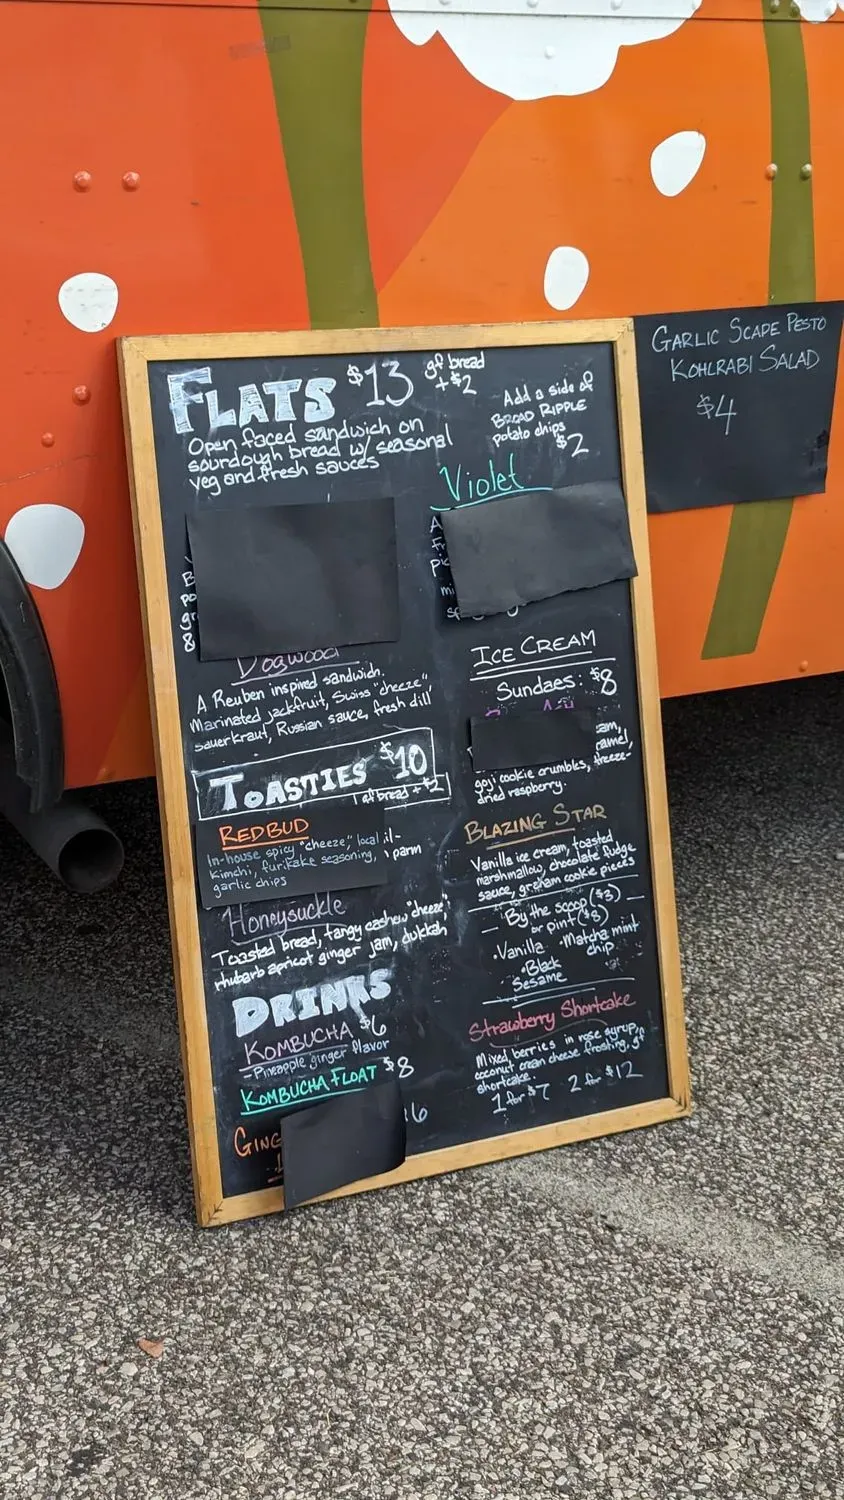 FLATS $13
gf bread
+$2
Open faced sandwich on
sourdough bread w/ seasonal
veg and fresh sauces
Add a side of
BROAD RIPPLE
potato chips
$2
Violet
Dogwood
A Reuben inspired sandwich.
Marinated jackfruit, Swiss "cheeze"
sauerkraut, Russian sauce, fresh dill
TOASTIES $10
gf bread + $2
REDBUD
In-house spicy "cheeze," local
kimchi, furikake seasoning,
garlic chips
parm
Honeysuckle
Toasted bread, tangy cashew "cheeze,"
rhubarb apricot ginger jam, dukkah
DRINKS
KOMBUCHA $6
-Pineapple ginger flavor
KOMBUCHA FLOAT $8
ICE CREAM
Sundaes: $8
goji cookie crumbles, freeze-
dried raspberry.
BLAZING STAR
Vanilla ice cream, toasted
marshmallow, chocolate fudge
sauce, graham cookie pieces
— By the scoop ($3) —
or pint ($8)
•Vanilla •Matcha mint
chip
•Black
Sesame
Strawberry Shortcake
Mixed berries in rose syrup,
coconut cream cheese frosting, gf
shortcake.
1 for $7 2 for $12
GARLIC SCAPE PESTO
KOHLRABI SALAD
$4